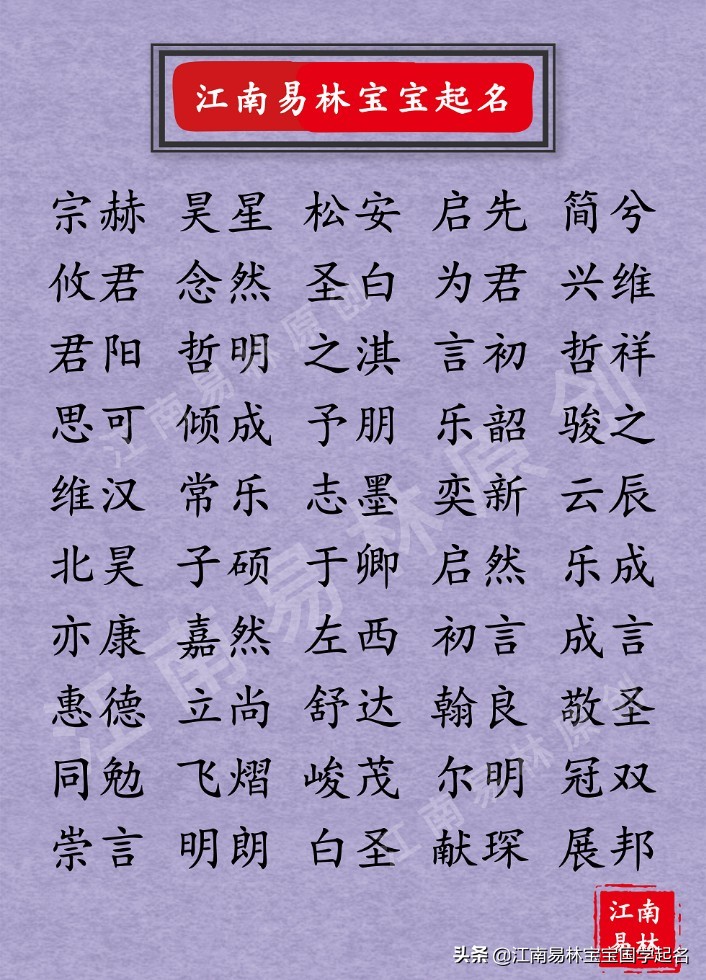 江南易林宝宝起名
宗赫 昊星 松安 启先 简兮
攸君 念然 圣白 为君 兴维
君阳 哲明 之淇 言初 哲祥
思可 倾成 予朋 乐韶 骏之
维汉 常乐 志墨 奕新 云辰
北昊 子硕 于卿 启然 乐成
亦康 嘉然 左西 初言 成言
惠德 立尚 舒达 翰良 敬圣
同勉 飞熠 峻茂 尔明 冠双
崇言 明朗 白圣 献琛 展邦
江南易林原创
江南易林原创
江南易林原创
江南
易林
头条 @江南易林宝宝国学起名